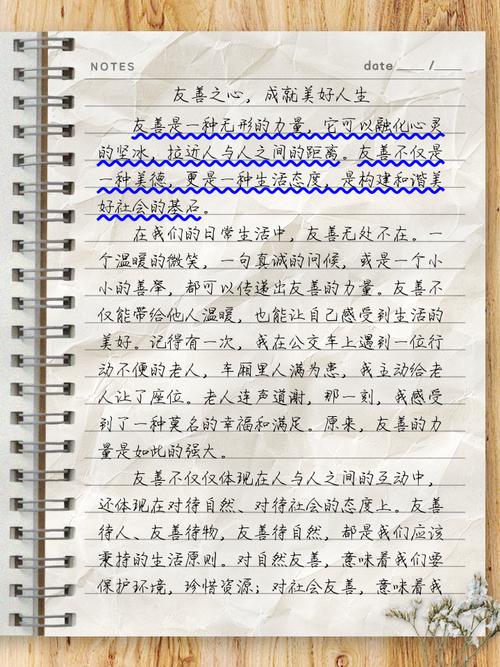 NOTES
date ____ /____
友善之心，成就美好人生
友善是一种无形的力量，它可以融化心灵
的坚冰，拉近人与人之间的距离。友善不仅是
一种美德，更是一种生活态度，是构建和谐美
好社会的基石。
在我们的日常生活中，友善无处不在。一
个温暖的微笑，一句真诚的问候，或是一个小
小的善举，都可以传递出友善的力量。友善不
仅能带给他人温暖，也能让自己感受到生活的
美好。记得有一次，我在公交车上遇到一位行
动不便的老人，车厢里人满为患，我主动给老
人让了座位。老人连声道谢，那一刻，我感受
到了一种莫名的幸福和满足。原来，友善的力
量是如此的强大。
友善不仅仅体现在人与人之间的互动中，
还体现在对待自然、对待社会的态度上。友善
待人、友善待物，友善待自然，都是我们应该
秉持的生活原则。对自然友善，意味着我们要
保护环境，珍惜资源；对社会友善，意味着我